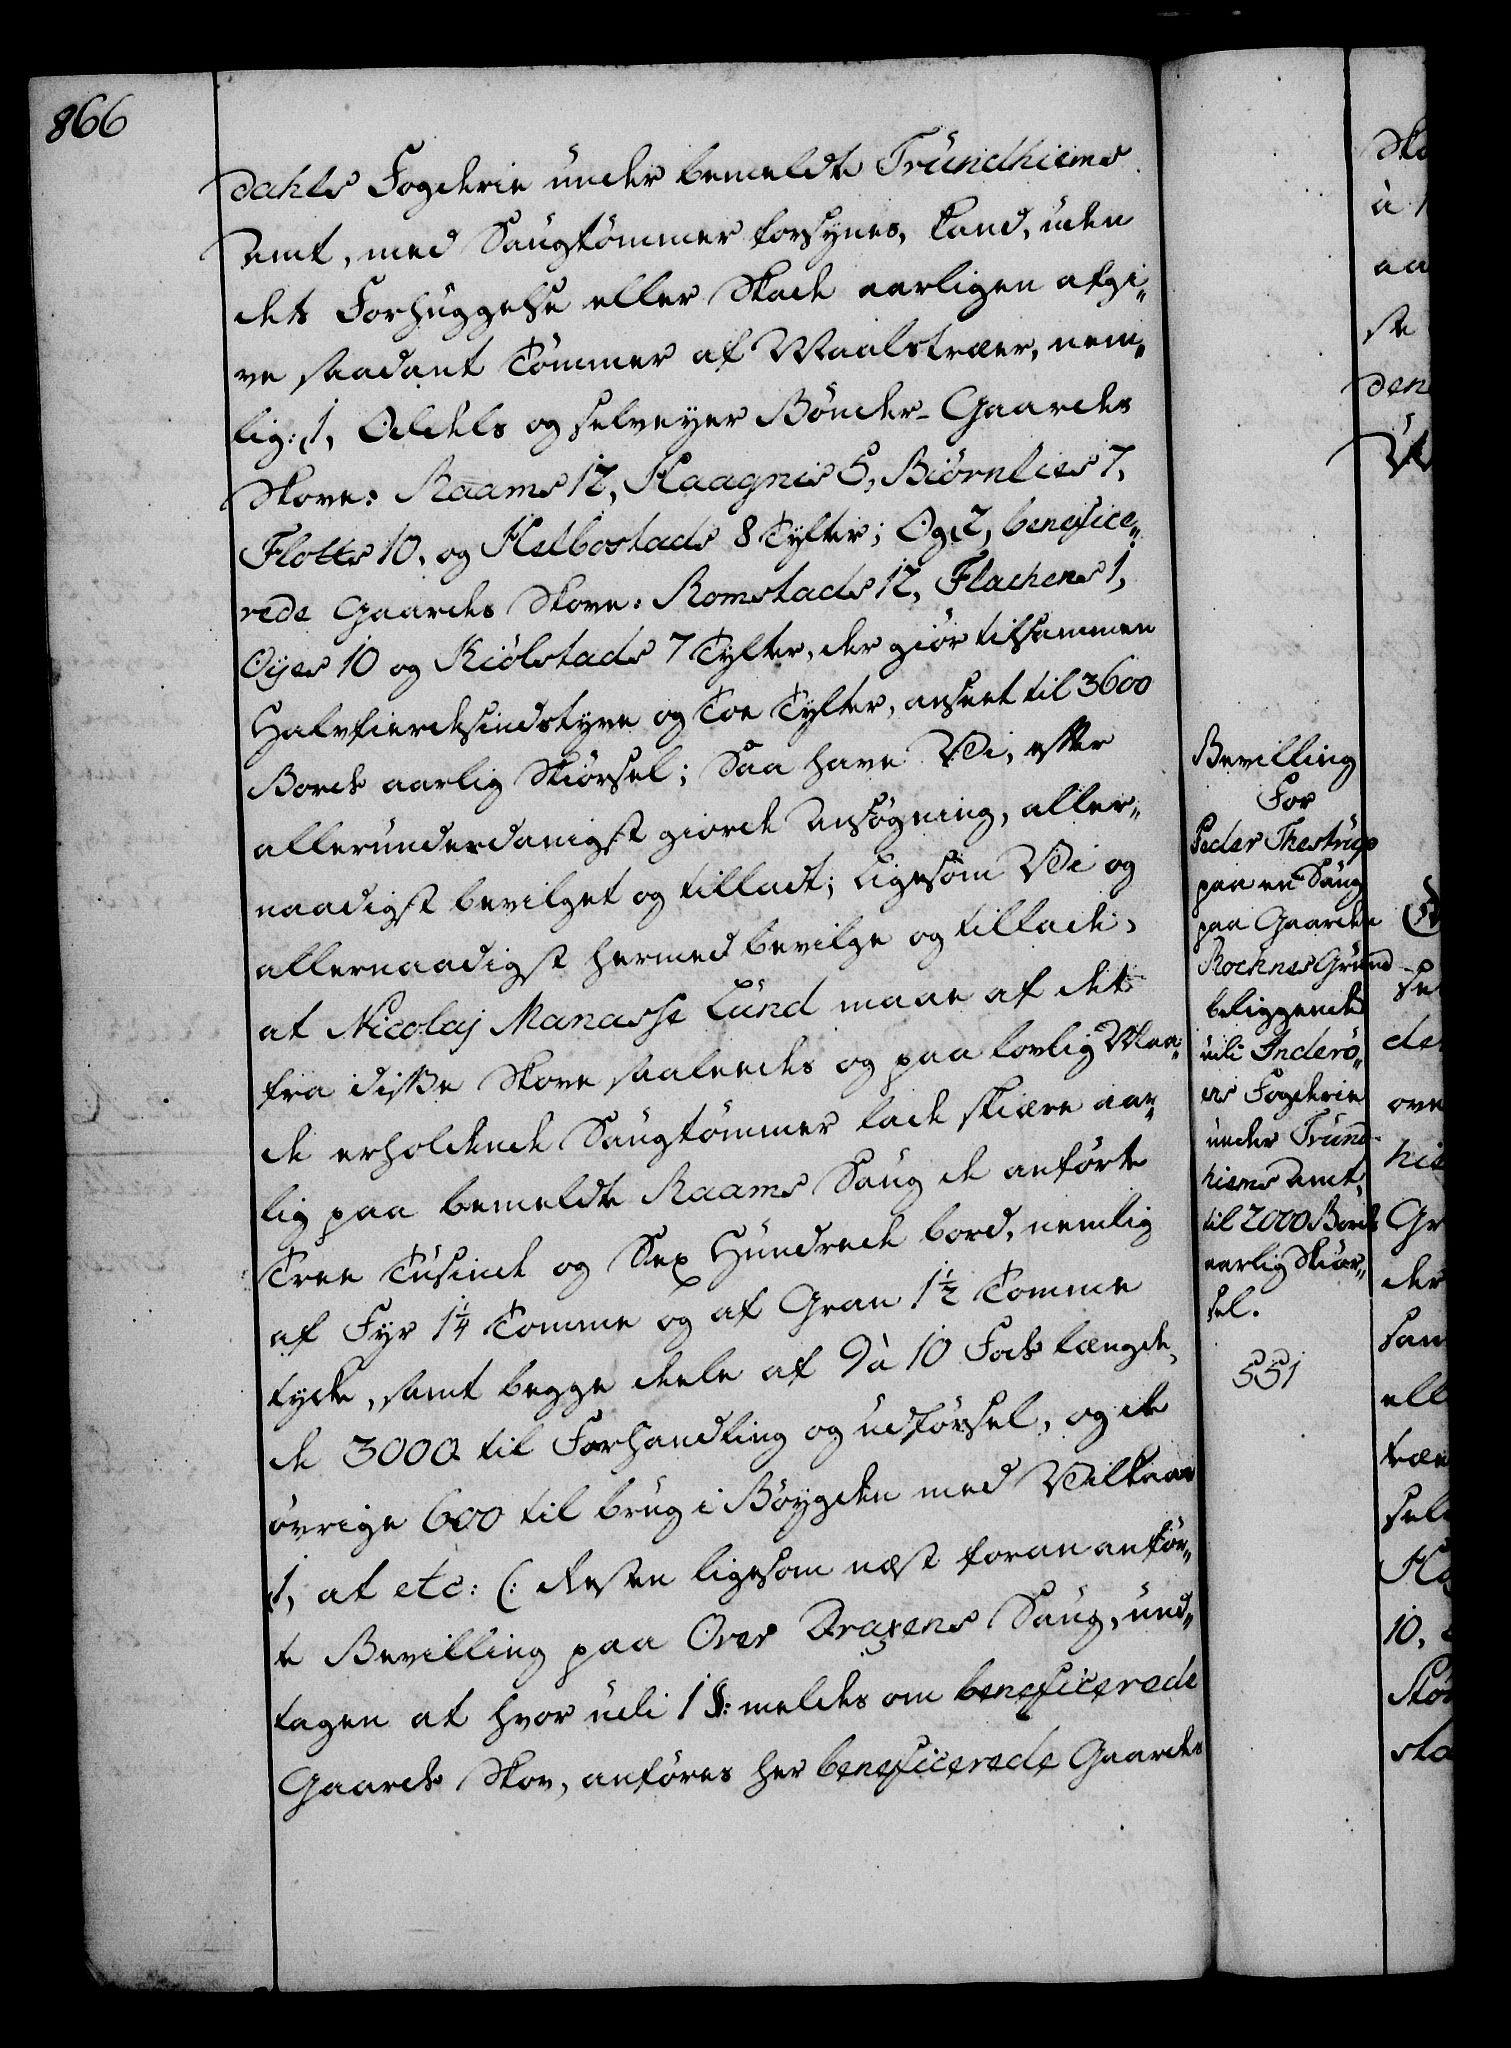 866
dahls Fogderie under bemeldte Trundhiems
Amt, med Saugtömmer forsynes, kand, uden
dets Forhuggelse eller Skade aarligen afgi„
ve saadant Tömmer af Maalstræer, nem„
lig: 1, Odels og selveyer Bönder-Gaardes
Skove: Raams 12, Haagnis 5, Biörnlies 7,
Flotts 10, og Helbostads 8 Tylter; Og 2, benefice„
rede Gaardes Skove: Romstads 12, Flachens 1,
Oyes 10 og Kiölstads 7 Tylter, der giör tilsammen
Halvfierdesindstyve og Toe Tylter, anseet til 3600
Borde aarlig Skiörsel; Saa have Vi, efter
allerunderdanigst giorde Ansøgning, aller„
naadigst bevilget og tilladt; ligesom Vi og
allernaadigst hermed bevilge og tillade,
at Nicolaj Manasse Lund maae af det
fra disse Skove saaleedes og paa lovlig Maa„
de erholdende Saugtömmer lade skiære aar„
lig paa bemeldte Raams Saug de anförte
Tree Tusinde og Sex Hundrede bord, nemlig
af Fyr 1¼ Tomme og af Gran 1½ Tomme
tycke, samt begge deele af 9 à 10 Fods længde,
de 3000 til Forhandling og udförsel, og de
övrige 600 til brug i Böygden med Vilkaar
1, at etc: (: Resten ligesom næst foran anför„
te Bevilling paa Over Draxens Saug, und„
tagen at hvor udi 1 §: meldes om beneficerede
Gaards Skov, anföres her beneficerede Gaardes
Bevilling
For
Peder Thestrup
paa en Saug
paa Gaarden
Rochnes Grund
beliggende
udi Inderö„
ens Fogderie
under Trund-
hiems Amt,
til 2000 Bords
aarlig Skiör„
sel.
551